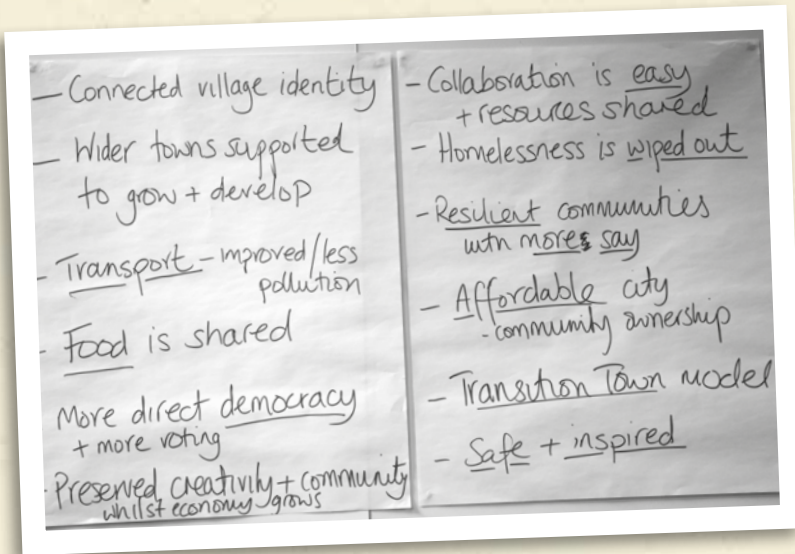 — Connected village identity
— Wider towns supported
to grow + develop
- Transport - improved/less
pollution
- Food is shared
More direct democracy
+ more voting
- Preserved creativity + community
whilst economy grows
- Collaboration is easy
+ resources shared
- Homelessness is wiped out
- Resilient communities
with more say
- Affordable city
- community ownership
- Transition Town model
- Safe + inspired